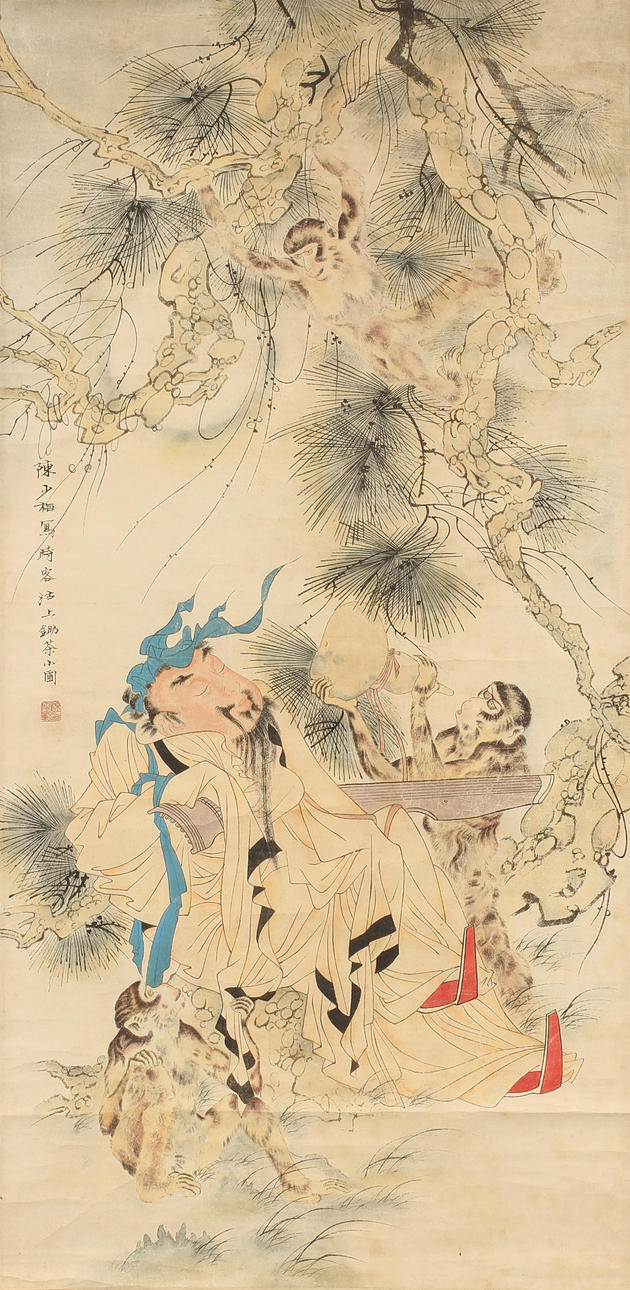 陳少梅寫時客沽上鋤茶小園